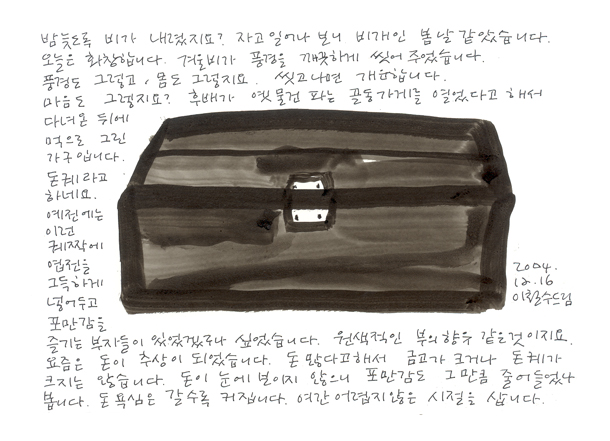 밤늦도록 비가 내렸지요? 자고 일어나 보니 비개인 봄날 같았습니다.
오늘은 화창합니다. 겨울비가 풍경을 깨끗하게 씻어 주었습니다.
풍경도 그렇고, 몸도 그렇지요. 씻고나면 개운합니다.
마음도 그렇지요? 후배가 옛물건 파는 골동가게를 열었다고 해서
다녀온 뒤에
먹으로 그린
가구입니다.
돈궤라고
하네요.
예전에는
이런
궤짝에
엽전을
그득하게
넣어두고
포만감을
즐기는 부자들이 있었겠구나 싶었습니다. 원색적인 부의향유 같은것이지요.
요즘은 돈이 추상이 되었습니다. 돈 많다고해서 금고가 크거나 돈궤가
크지는 않습니다. 돈이 눈에 보이지 않으니 포만감도 그만큼 줄어들었나
봅니다. 돈욕심은 갈수록 커집니다. 여간 어렵지않은 시절을 삽니다.
2004.
12.16
이철수드림